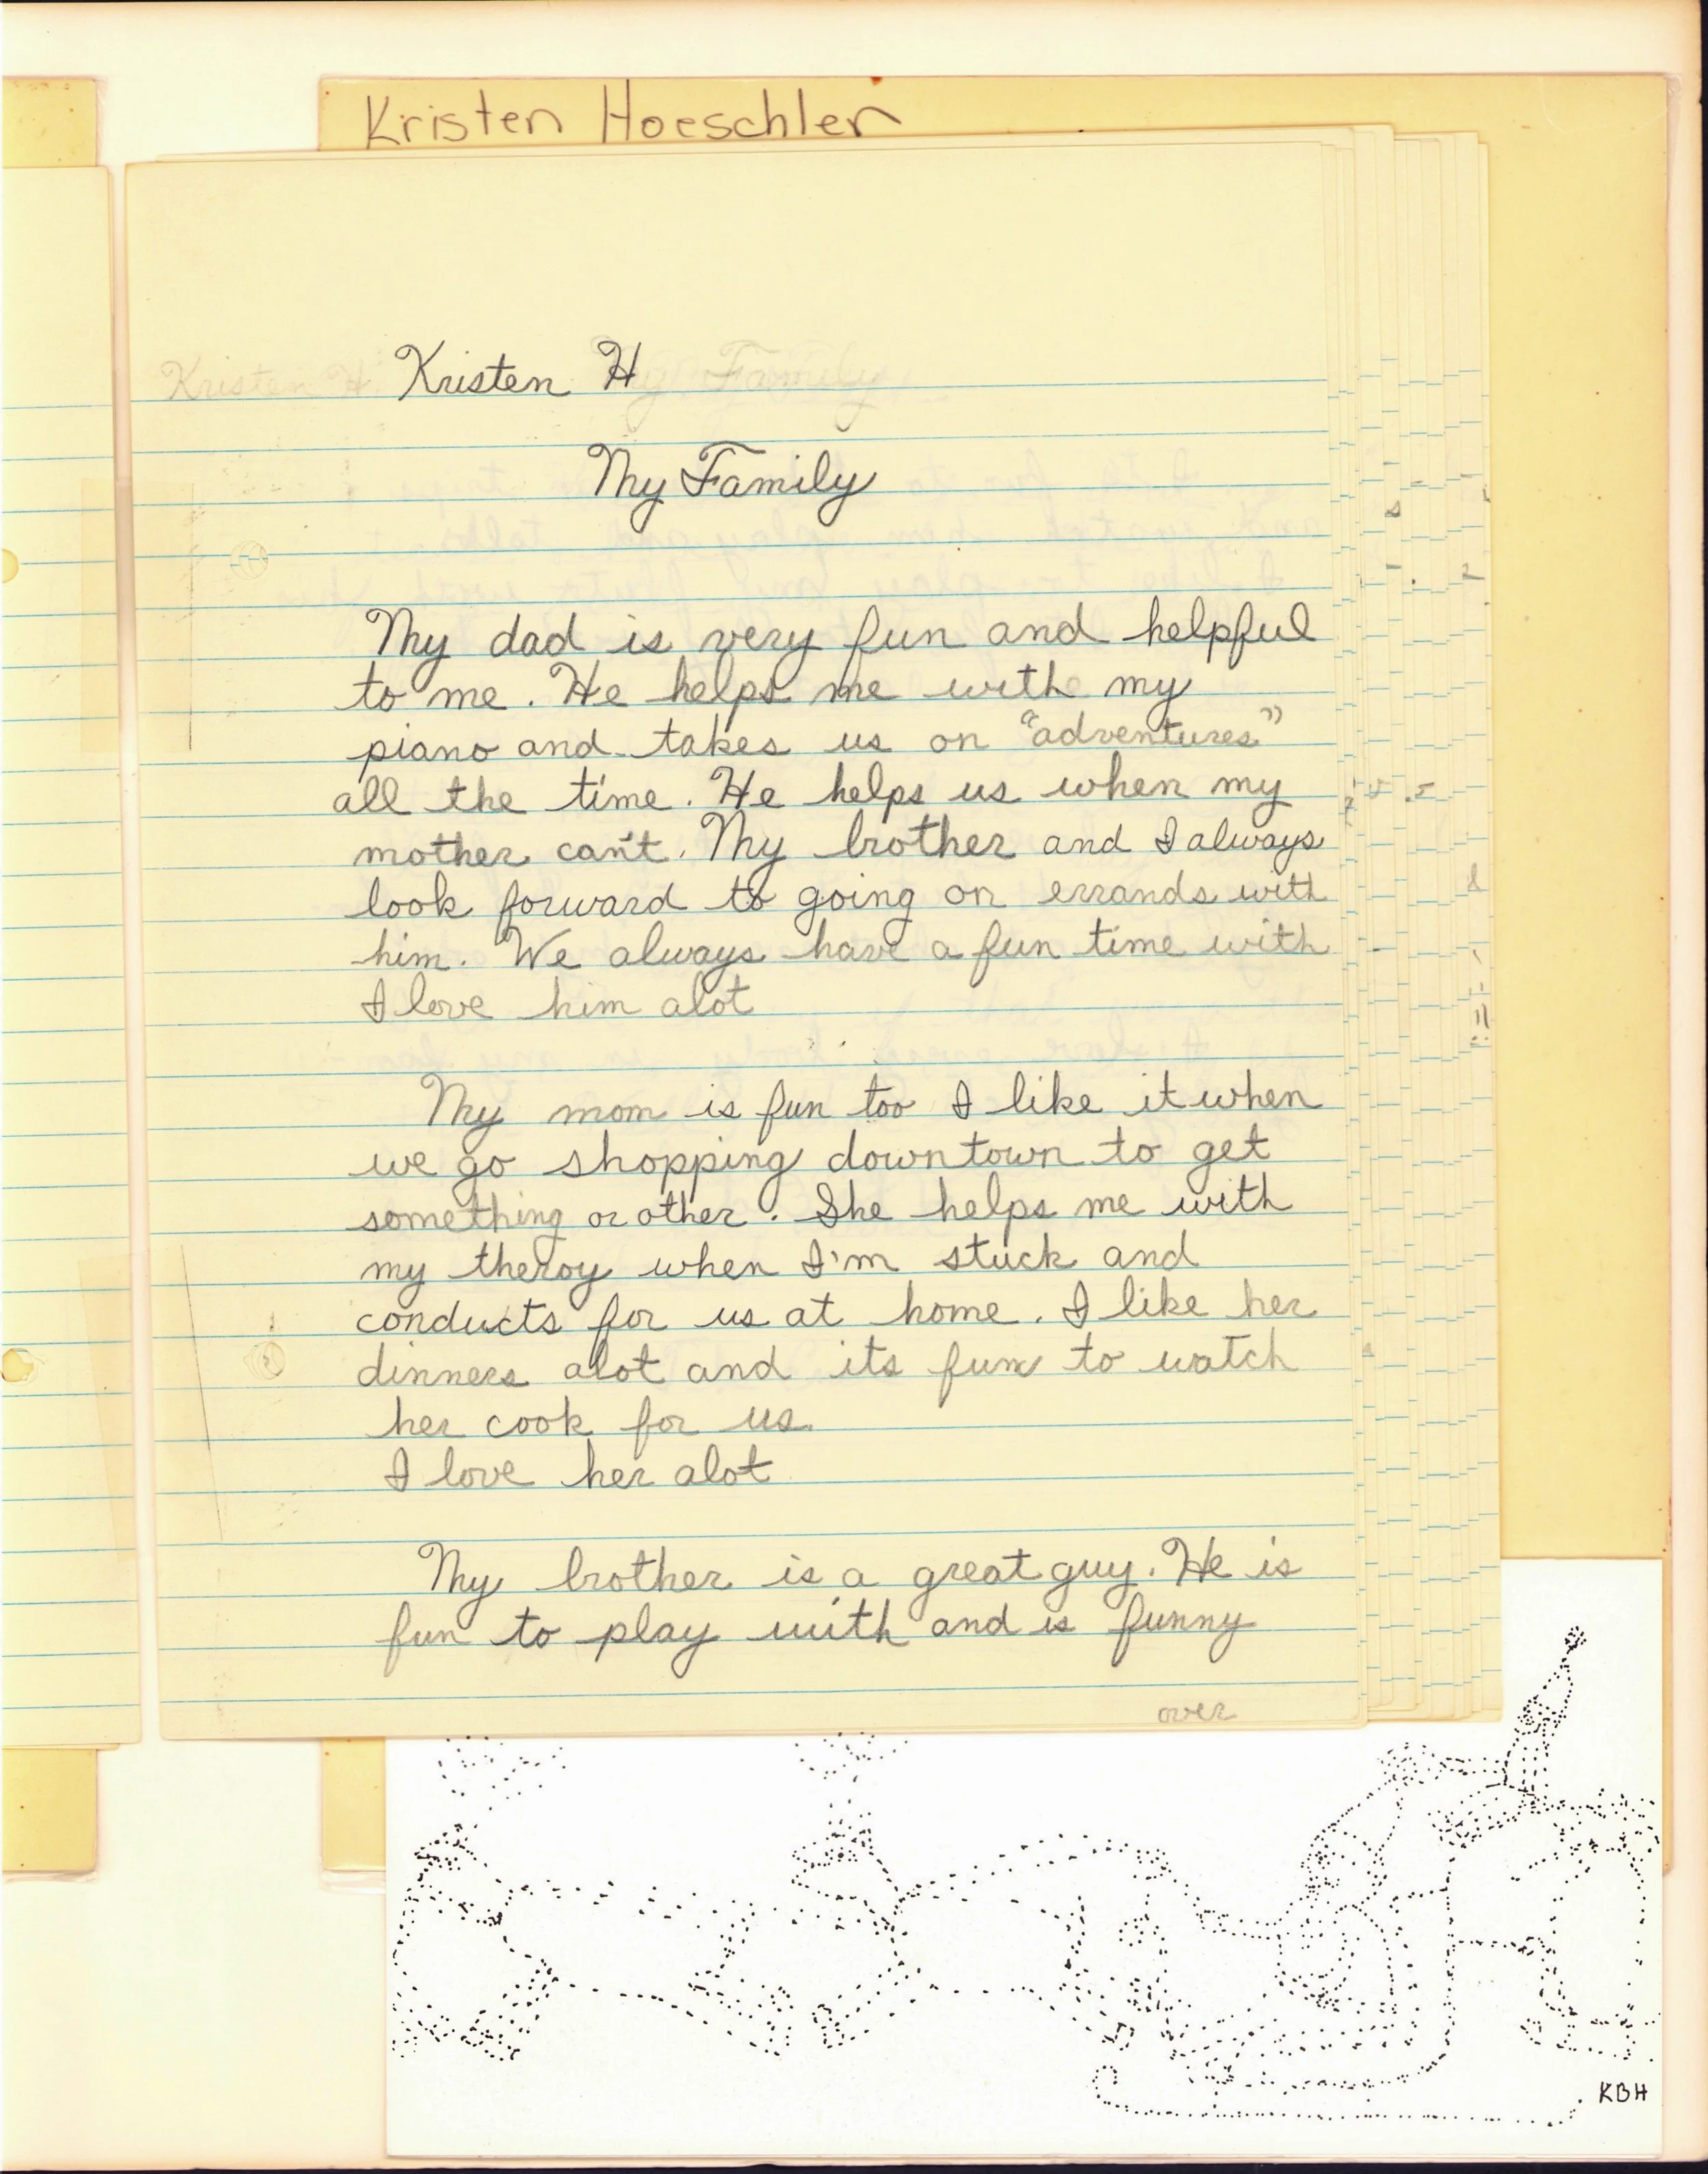 Kristen Hoeschler
Kristen H
My Family
My dad is very fun and helpful
to me. He helps me with my
piano and takes us on "adventures"
all the time. He helps us when my
mother can't. My brother and I always
look forward to going on errands with
him. We always have a fun time with
I love him alot
My mom is fun too I like it when
we go shopping downtown to get
something or other. She helps me with
my theroy when I'm stuck and
conducts for us at home. I like her
dinners alot and its fun to watch
her cook for us.
I love her alot
My brother is a great guy. He is
fun to play with and is funny
over
KBH